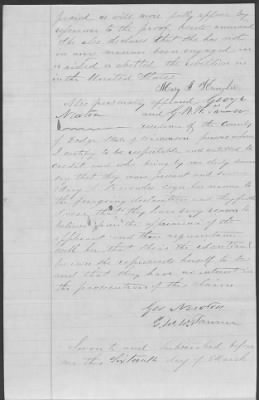 period as will more fully appear by
reference to the proof hereto annexed
She also declares that she has not
in any manner been engaged in
or aided or abetted the rebellion in
in the United States
Mary A
Also personally appeared George
Newton and G. W. Tanner
residents of the County
of Dodge State of Wisconsin persons whom
I certify to be respectable and entitled to
credit and who being by me duly sworn
say that they were present and saw
Mary A. sign her name to
the foregoing declaration and they further
swear that they have every reason to
believe from the appearance of the
applicant and their acquaintance
with her that she is the identical
person she represents herself to be
and that they have no interest in
the prosecution of this claim
Geo Newton
G. W. Tanner
Sworn to and subscribed before
me this day of March